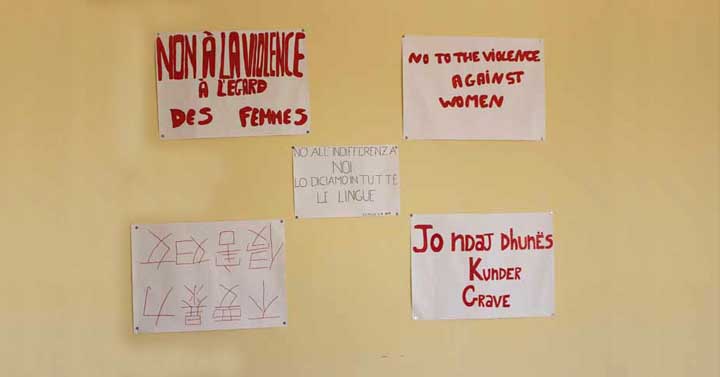 NON À LA VIOLENCE
À L'EGARD
DES FEMMES
NO TO THE VIOLENCE
AGAINST
WOMEN
NO ALL'INDIFFERENZA
NOI
LO DICIAMO IN TUTTE
LE LINGUE
Jo ndaj dhunës
Kunder
Grave